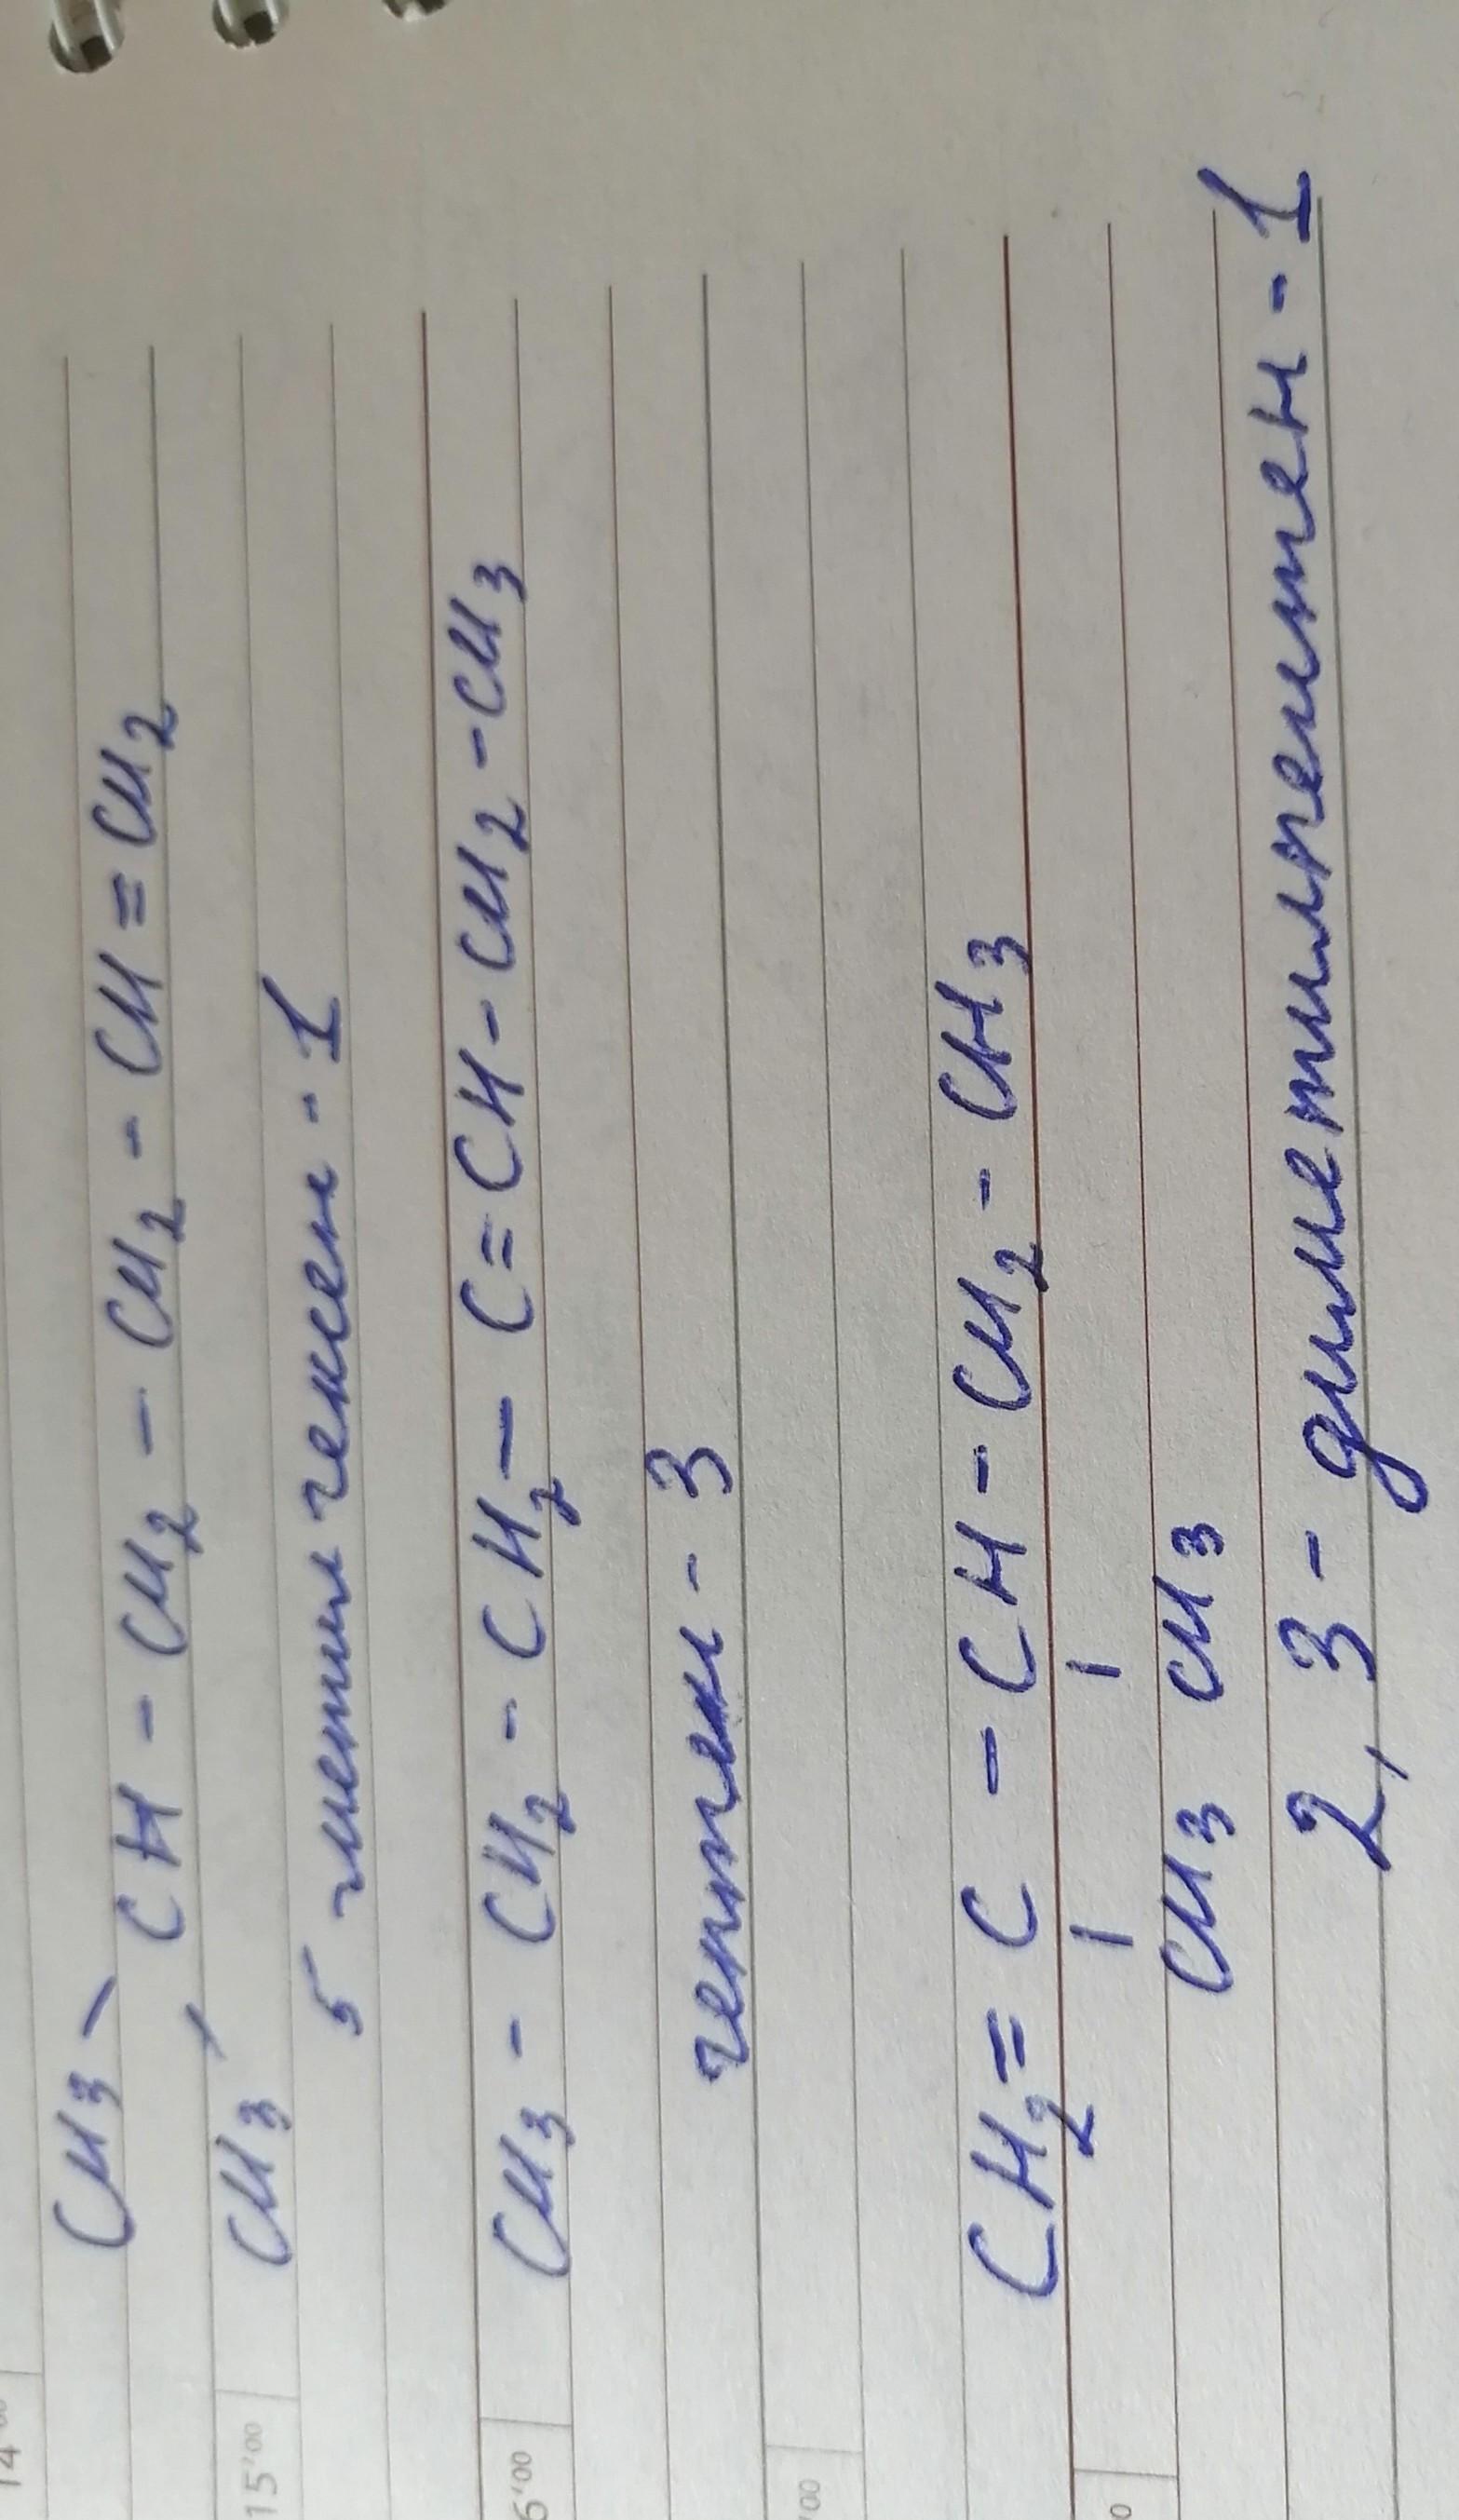 CH3
CH - CH2 - CH2 - CH2 - CH = CH2
CH3
5 метил гексен - 1
CH3 - CH2 - CH2 - C = CH - CH2 - CH3
гептен - 3
CH2 = C - CH - CH2 - CH3
CH3 CH3
2, 3 - диметилпентен - 1
15'00
6'00
'00